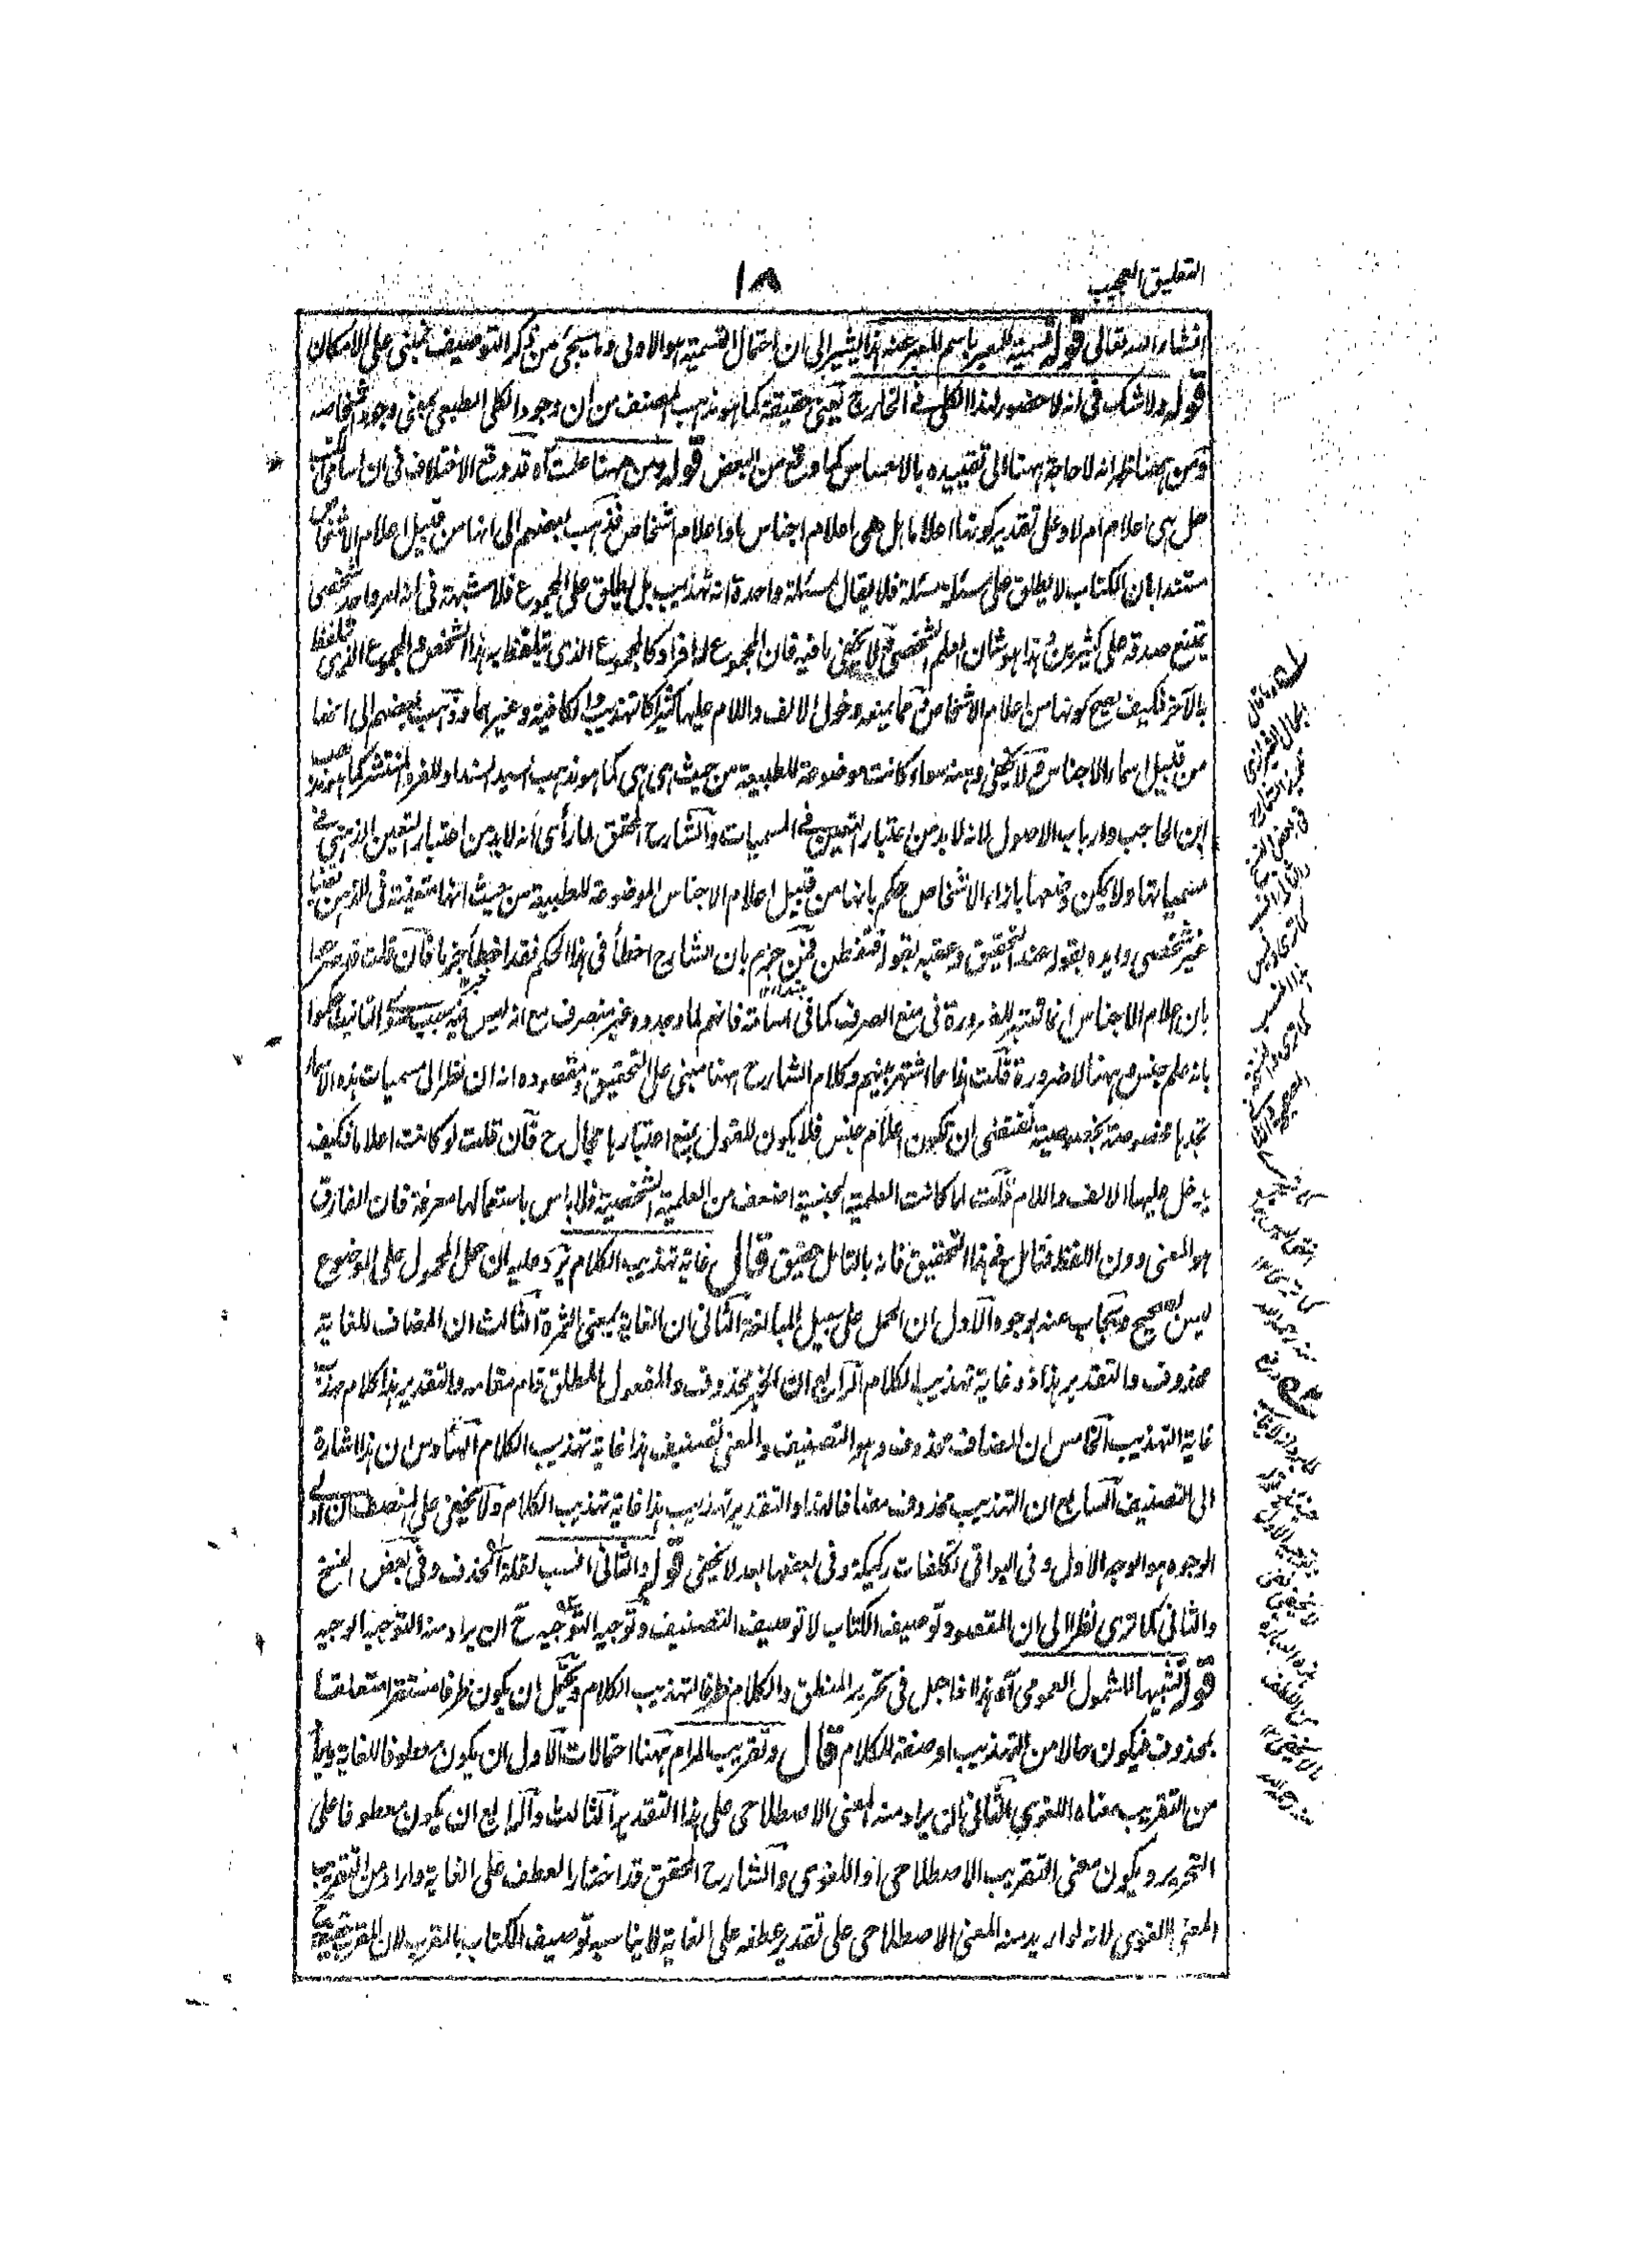 التعليق العجيب
١٨
انشاء الله تعالى قوله تسمية للمعبر باسم المعبر عنه هذا يشير الى ان احتمال التسمية هو الاولى وما سيجئ من ذكر التوصيف مبنى على الامكان
قوله ولا شك فى انه لا حضور لهذا الكلى فى الخارج يعنى حقيقة كما هو مذهب المصنف من ان وجود الكلى الطبعى بمعنى وجود اشخاصه
ومن ههنا ظهر انه لا حاجة ههنا الى تقييده بالاحساس كما وقع من البعض قوله ومن ههنا علمت آه قد وقع الاختلاف فى ان اسامى الكتب
هل هى اعلام ام لا وعلى تقدير كونها اعلاما هل هى اعلام اجناس او اعلام اشخاص فذهب بعضهم الى انها من قبيل اعلام الاشخاص
مستندا بان الكتاب لا يطلق على مسئلة مسئلة فلا يقال لمسئلة واحدة انه تهذيب بل يطلق على المجموع فلا شبهة فى انه امر واحد شخصى
يمتنع صدقه على كثيرين وهذا هو شان العلم الشخصى وفيه لا يخفى ما فيه فان المجموع له افراد كالمجموع الذى يتلفظ به هذا الشخص والمجموع الذى تلفظ
بالآخر فكيف يصح كونها من اعلام الاشخاص ومما يمنعه دخول الالف واللام عليها كثيرا كالتهذيب والكافية وغيرهما وذهب بعضهم الى انها
من قبيل اسماء الاجناس ولا يخفى وهنه سواء كانت موضوعة للطبيعة من حيث هى هى كما هو مذهب السيد السند او للفرد المنتشر كما هو مذهب
ابن الحاجب وارباب الاصول لانه لا بد من اعتبار التعين فى المسميات والشارح المحقق لما رأى انه لا بد من اعتبار التعين الذهنى فى
مسمياتها ولا يمكن وضعها بازاء الاشخاص حكم بانها من قبيل اعلام الاجناس الموضوعة للطبيعة من حيث انها متعينة فى الذهن تعينا
غير شخصى وايده بقوله عند التحقيق وعقبه بقوله فتفطن فمن جزم بان الشارح اخطأ فى هذا الحكم فقد اخطأ بجزما فان قلت قد صرحوا
بان اعلام الاجناس انما تعتبر للضرورة فى منع الصرف كما فى اسامة فانهم لما وجدوه غير منصرف مع انه ليس فيه سبب سوى التانيث حكموا
بانه علم جنس وههنا لا ضرورة قلت هذا مما اشتهر بينهم وكلام الشارح ههنا مبنى على التحقيق ومقصوده انه ان نظر الى مسميات هذه الاسماء
تجدها مخصوصة بخصوصية تقتضى ان تكون اعلام جنس فلا يكون للقول بمنع اعتبارها مجال ح فان قلت لو كانت اعلاما فكيف
يدخل عليها الالف واللام قلت لما كانت العلمية الجنسية اضعف من العلمية الشخصية فلا باس باستعمالها معرفة فان الفارق
هو المعنى دون اللفظ فتامل فى هذا التحقيق فانه بالتامل حقيق قال غاية تهذيب الكلام يرد عليه ان حمل المحمول على الموضوع
ليس بصحيح ويجاب عنه بوجوه الاول ان الحمل على سبيل المبالغة الثانى ان الغاية بمعنى الثمرة الثالث ان المضاف للغاية
محذوف والتقدير هذا ذو غاية تهذيب الكلام الرابع ان الخبر محذوف والمفعول المطلق قائم مقامه والتقدير هذا كلام مهذب
غاية التهذيب الخامس ان المضاف محذوف وهو التصنيف والمعنى تصنيف هذا غاية تهذيب الكلام السادس ان هذا اشارة
الى التصنيف السابع ان التهذيب محذوف مضافا لهذا والتقدير تهذيب هذا غاية تهذيب الكلام ولا يخفى على المنصف ان اولى
الوجوه هو الوجه الاول وفى البواقى تكلفات ركيكة وفى بعضها بعد لا يخفى قوله والثانى انسب لقلة الحذف وفى بعض النسخ
والثانى كما ترى نظرا الى ان المقصود توصيف الكتاب لا توصيف التصنيف وتوجيه التوجيه ح ان يراد منه التوجيه الوجيه
قوله تشبيها للشمول العمومى آه هذا اذا جعل فى تحرير المنطق والكلام ظرفا لتهذيب الكلام ويحتمل ان يكون ظرفا مستقرا متعلقا
بمحذوف فيكون حالا من التهذيب او صفة للكلام قال وتقريب المرام ههنا احتمالات الاول ان يكون معطوفا للغاية ويراد
من التقريب معناه اللغوي الثانى ان يراد منه المعنى الاصطلاحى على هذا التقدير الثالث والرابع ان يكون معطوفا على
التحرير ويكون معنى التقريب الاصطلاحى او اللغوى والشارح المحقق قد اختار العطف على الغاية واراد من التقريب
المعنى اللغوى لانه لو اريد منه المعنى الاصطلاحى على تقدير عطفه على الغاية لا يناسبه توصيف الكتاب بالتقريب لان التقريب ح